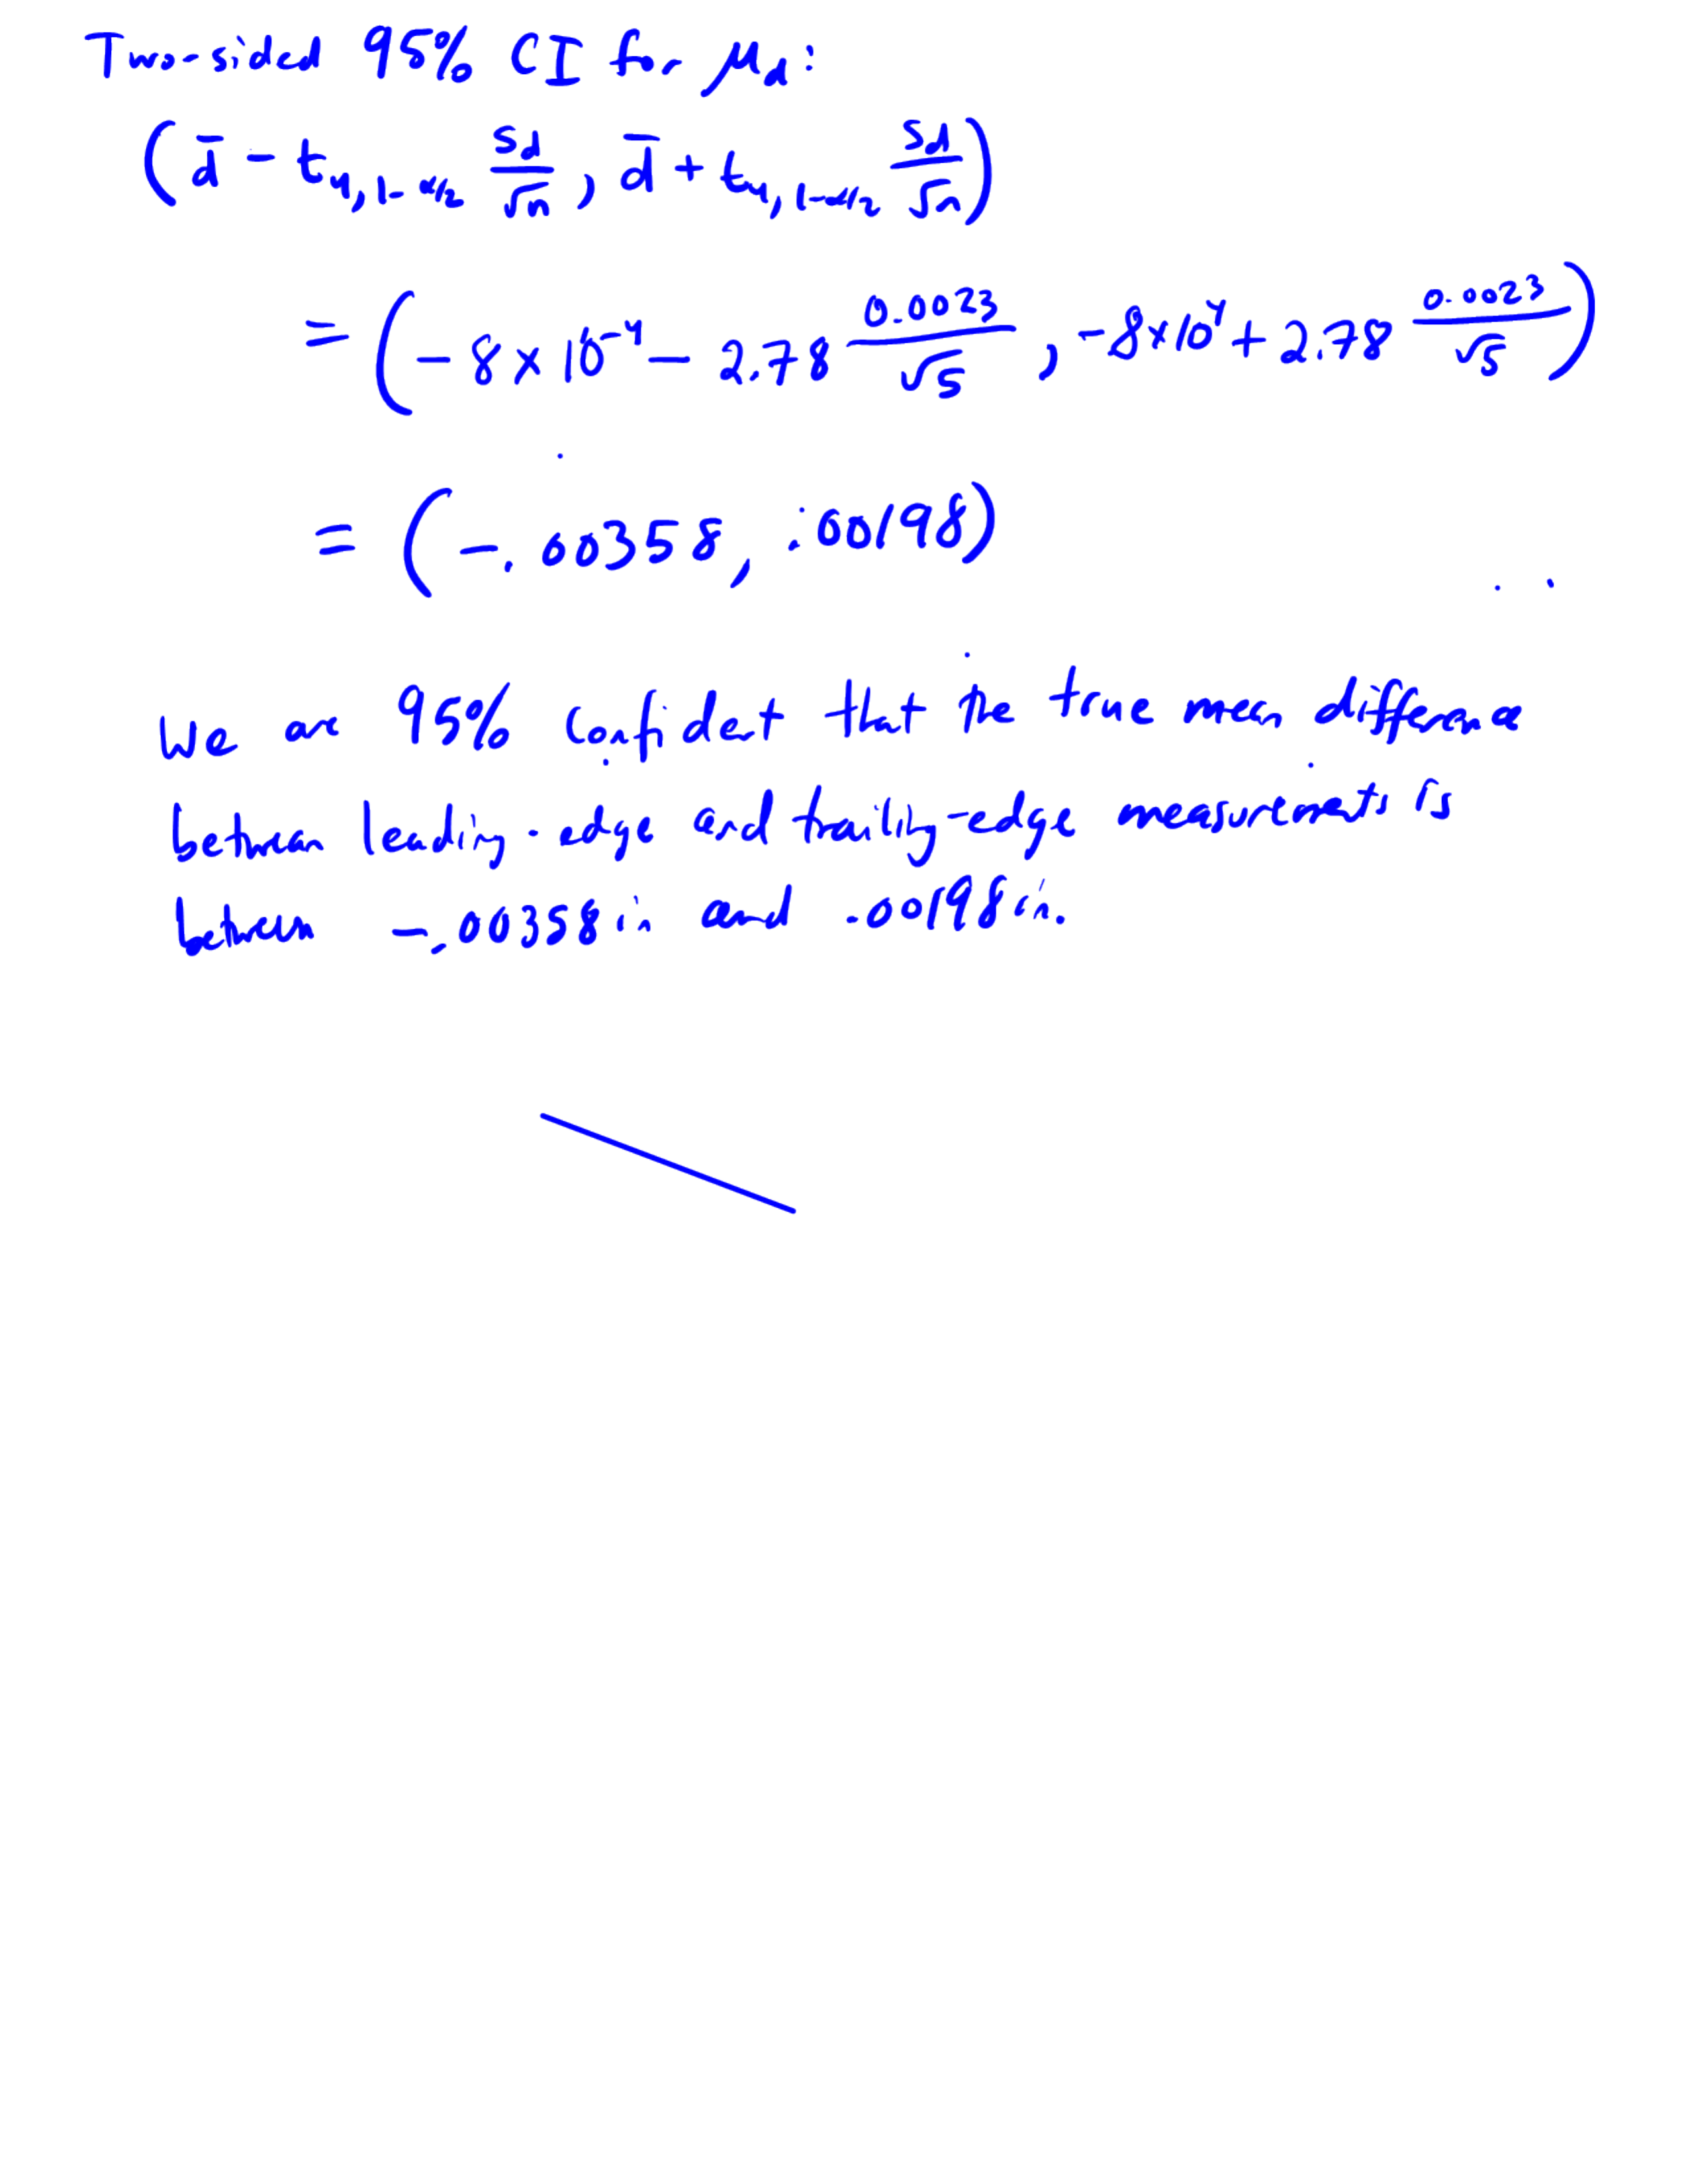 Two-sided 95% CI for μ_d:
(d̄ - t_{4,1-α/2} s_d/√n, d̄ + t_{4,1-α/2} s_d/√n)
= (-8×10^{-4} - 2.78 0.0023/√5, -8×10^4 + 2.78 0.0023/√5)
= (-.00358, .00198)
We are 95% confident that the true mean difference
between leading-edge and trailing-edge measurements is
between -.00358 in and .00198 in.